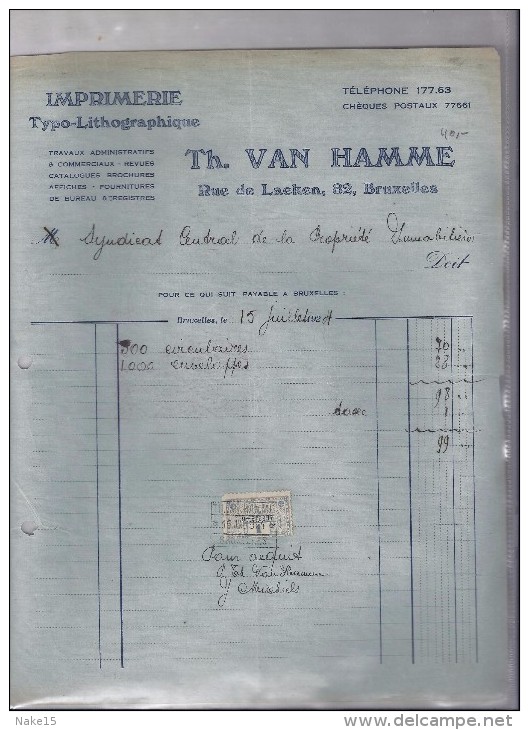 IMPRIMERIE
Typo-Lithographique
TÉLÉPHONE 177.63
CHÈQUES POSTAUX 77661
40,-
TRAVAUX ADMINISTRATIFS
& COMMERCIAUX - REVUES
CATALOGUES BROCHURES
AFFICHES - FOURNITURES
DE BUREAU & REGISTRES
TH. VAN HAMME
Rue de Laeken, 82, Bruxelles
M Syndicat Central de la Propriété Immobilière
Doit
POUR CE QUI SUIT PAYABLE A BRUXELLES :
Bruxelles, le 15 Juillet
500 circulaires 70
1000 enveloppes 28
98
taxe 1
99
Pour acquit
Th. Van Hamme
Nake15
www.delcampe.net